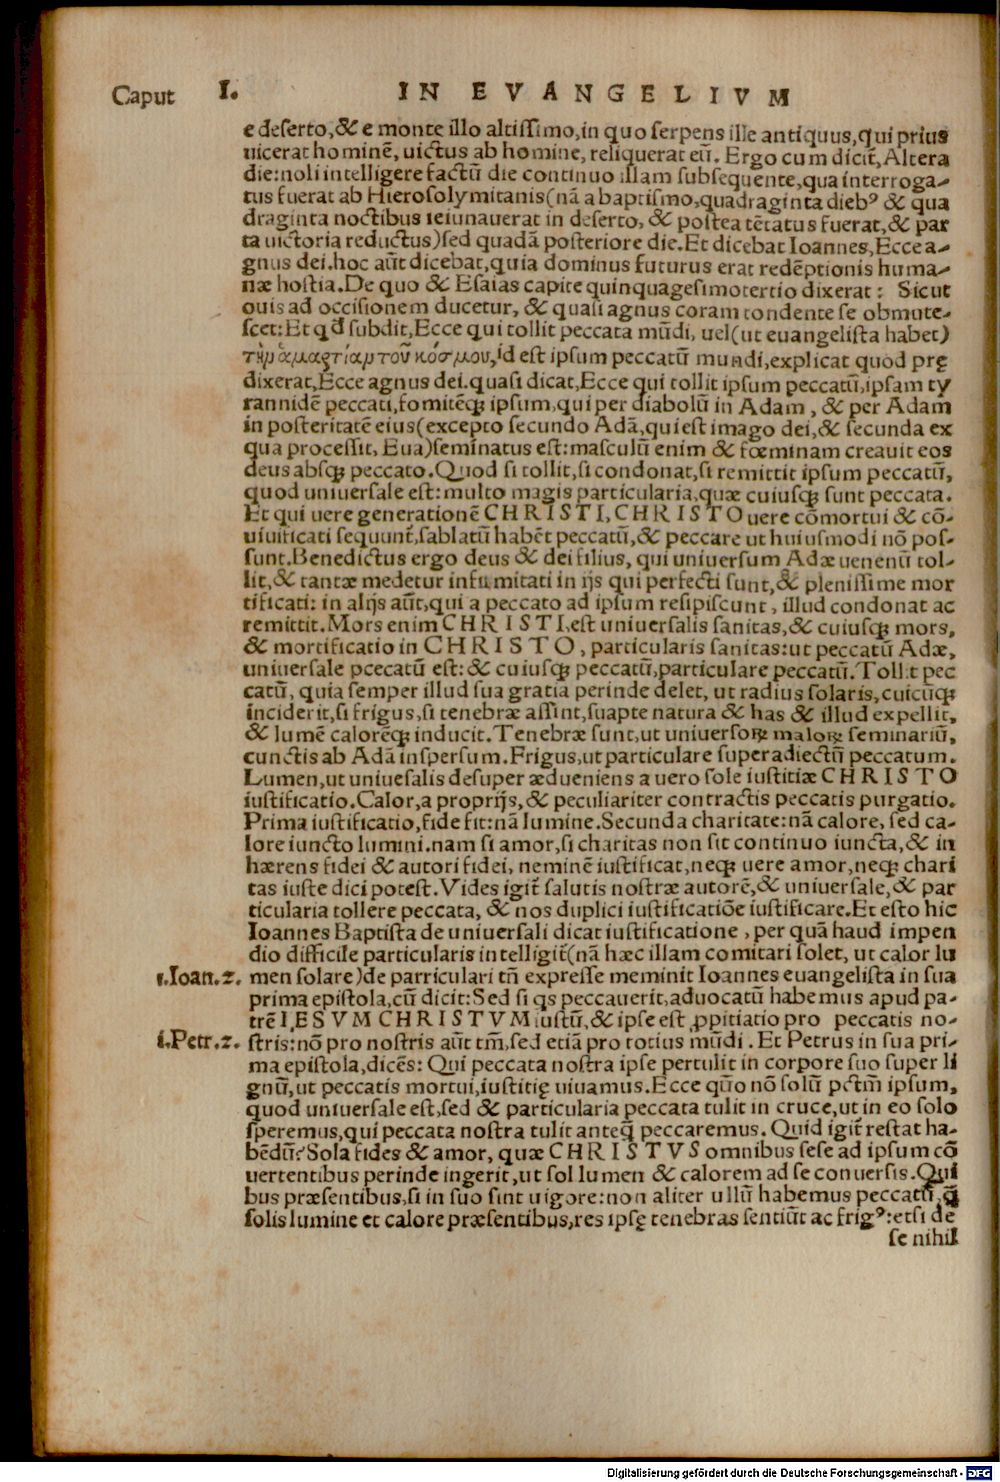 Caput I. IN EVANGELIVM
e deserto, & e monte illo altissimo, in quo serpens ille antiquus, qui prius
uicerat hominē, uictus ab homine, reliquerat eū. Ergo cum dicit̄, Altera
die: noli intelligere factū die continuo illam subsequente, qua interroga-
tus fuerat ab Hierosolymitanis (nā a baptismo, quadraginta diebꝰ & qua
draginta noctibus ieiunauerat in deserto, & postea tētatus fuerat, & par
ta uictoria reductus) sed quadā posteriore die. Et dicebat Ioannes, Ecce a-
gnus dei. hoc aūt dicebat, quia dominus futurus erat redēptionis huma-
næ hostia. De quo & Esaias capite quinquagesimotertio dixerat: Sicut
ouis ad occisionem ducetur, & quasi agnus coram tondente se obmute-
scet: Et qd̄ subdit, Ecce qui tollit peccata mūdi, uel (ut euangelista habet)
τὴμ ἁμαρτίαμ τοῦ κόσμου, id est ipsum peccatū mundi, explicat quod prę
dixerat, Ecce agnus dei. quasi dicat, Ecce qui tollit ipsum peccatū, ipsam ty
rannidē peccati, fomitēqꝫ ipsum, qui per diabolū in Adam, & per Adam
in posteritatē eius (excepto secundo Adā, qui est imago dei, & secunda ex
qua processit, Eua) seminatus est: masculū enim & fœminam creauit eos
deus absqꝫ peccato. Quod si tollit, si condonat, si remittit ipsum peccatū,
quod uniuersale est: multo magis particularia, quæ cuiusqꝫ sunt peccata.
Et qui uere generationē CHRISTI, CHRISTO uere cōmortui & cō-
uiuificati sequunt̄, sablatū habēt peccatū, & peccare ut huiusmodi nō pos-
sunt. Benedictus ergo deus & dei filius, qui uniuersum Adæ uenenū tol-
lit, & tantæ medetur infirmitati in ijs qui perfecti sunt, & plenissime mor
tificati: in alijs aūt, qui a peccato ad ipsum resipiscunt, illud condonat ac
remittit. Mors enim CHRISTI, est uniuersalis sanitas, & cuiusqꝫ mors,
& mortificatio in CHRISTO, particularis sanitas: ut peccatū Adæ,
uniuersale pcecatū est: & cuiusqꝫ peccatū, particulare peccatū. Tollit pec
catū, quia semper illud sua gratia perinde delet, ut radius solaris, cuicūqꝫ
inciderit, si frigus, si tenebræ assint, suapte natura & has & illud expellit,
& lumē calorēqꝫ inducit. Tenebræ sunt, ut uniuersoꝝ maloꝝ seminariū,
cunctis ab Adā inspersum. Frigus, ut particulare superadiectū peccatum.
Lumen, ut uniuesalis desuper ædueniens a uero sole iustitiæ CHRISTO
iustificatio. Calor, a proprijs, & peculiariter contractis peccatis purgatio.
Prima iustificatio, fide fit: nā lumine. Secunda charitate: nā calore, sed ca-
lore iuncto lumini. nam si amor, si charitas non sit continuo iuncta, & in
hærens fidei & autori fidei, neminē iustificat, neqꝫ uere amor, neqꝫ chari
tas iuste dici potest. Vides igit̄ salutis nostræ autorē, & uniuersale, & par
ticularia tollere peccata, & nos duplici iustificatiōe iustificare. Et esto hic
Ioannes Baptista de uniuersali dicat iustificatione, per quā haud impen
dio difficile particularis intelligit̄ (nā hæc illam comitari solet, ut calor lu
1. Ioan. 2. men solare) de parriculari tn̄ expresse meminit Ioannes euangelista in sua
prima epistola, cū dicit: Sed si qs peccauerit, aduocatū habemus apud pa-
trē IESVM CHRISTVM iustū, & ipse est ꝓpitiatio pro peccatis no-
i. Petr. 2. stris: nō pro nostris aūt tm̄, sed etiā pro totius mūdi. Et Petrus in sua pri-
ma epistola, dicēs: Qui peccata nostra ipse pertulit in corpore suo super li
gnū, ut peccatis mortui, iustitię uiuamus. Ecce quō nō solū pctm̄ ipsum,
quod uniuersale est, sed & particularia peccata tulit in cruce, ut in eo solo
speremus, qui peccata nostra tulit anteq̄ peccaremus. Quid igit̄ restat ha-
bēdū? Sola fides & amor, quæ CHRISTVS omnibus sese ad ipsum cō
uertentibus perinde ingerit, ut sol lumen & calorem ad se conuersis. Qui
bus præsentibus, si in suo sint uigore: non aliter ullū habemus peccatū, q̄
solis lumine et calore præsentibus, res ipsę tenebras sentiūt ac frigꝰ: etsi de
se nihil
Digitalisierung gefördert durch die Deutsche Forschungsgemeinschaft - DFG